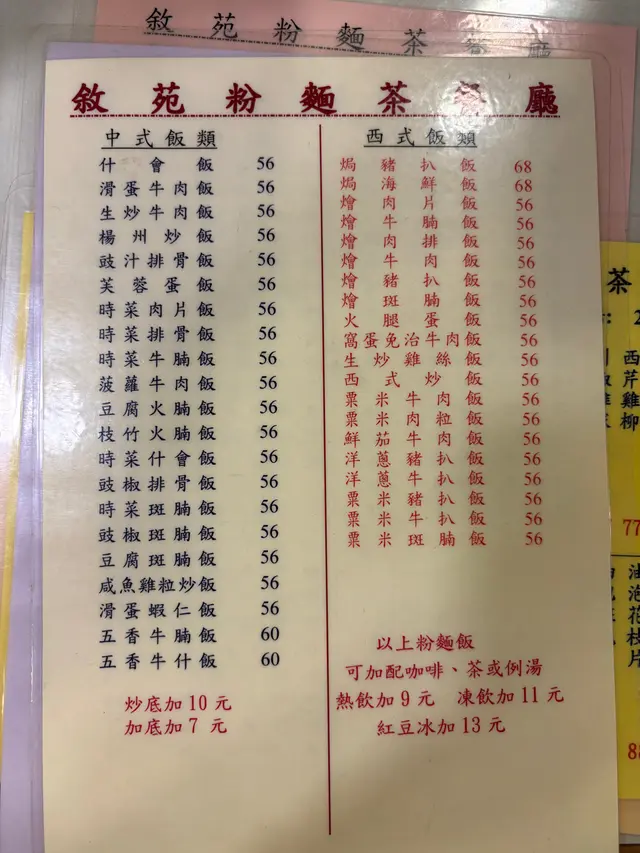 敘苑粉麵茶餐廳
敘苑粉麵茶餐廳
中式飯類
什會飯 56
滑蛋牛肉飯 56
生炒牛肉飯 56
楊州炒飯 56
豉汁排骨飯 56
芙蓉蛋飯 56
時菜肉片飯 56
時菜排骨飯 56
時菜牛腩飯 56
菠蘿牛肉飯 56
豆腐火腩飯 56
枝竹火腩飯 56
時菜什會飯 56
豉椒排骨飯 56
時菜斑腩飯 56
豉椒斑腩飯 56
豆腐斑腩飯 56
咸魚雞粒炒飯 56
滑蛋蝦仁飯 56
五香牛腩飯 60
五香牛什飯 60
炒底加 10 元
加底加 7 元
西式飯類
焗豬扒飯 68
焗海鮮飯 68
燴肉片飯 56
燴牛腩飯 56
燴肉排飯 56
燴牛肉飯 56
燴豬扒飯 56
燴斑腩飯 56
火腿蛋飯 56
窩蛋免治牛肉飯 56
生炒雞絲飯 56
西式炒飯 56
粟米牛肉飯 56
粟米肉粒飯 56
鮮茄牛肉飯 56
洋蔥豬扒飯 56
洋蔥牛扒飯 56
粟米豬扒飯 56
粟米牛扒飯 56
粟米斑腩飯 56
以上粉麵飯
可加配咖啡、茶或例湯
熱飲加 9 元 凍飲加 11 元
紅豆冰加 13 元
茶
西芹雞柳
77
油泡花枝片
88